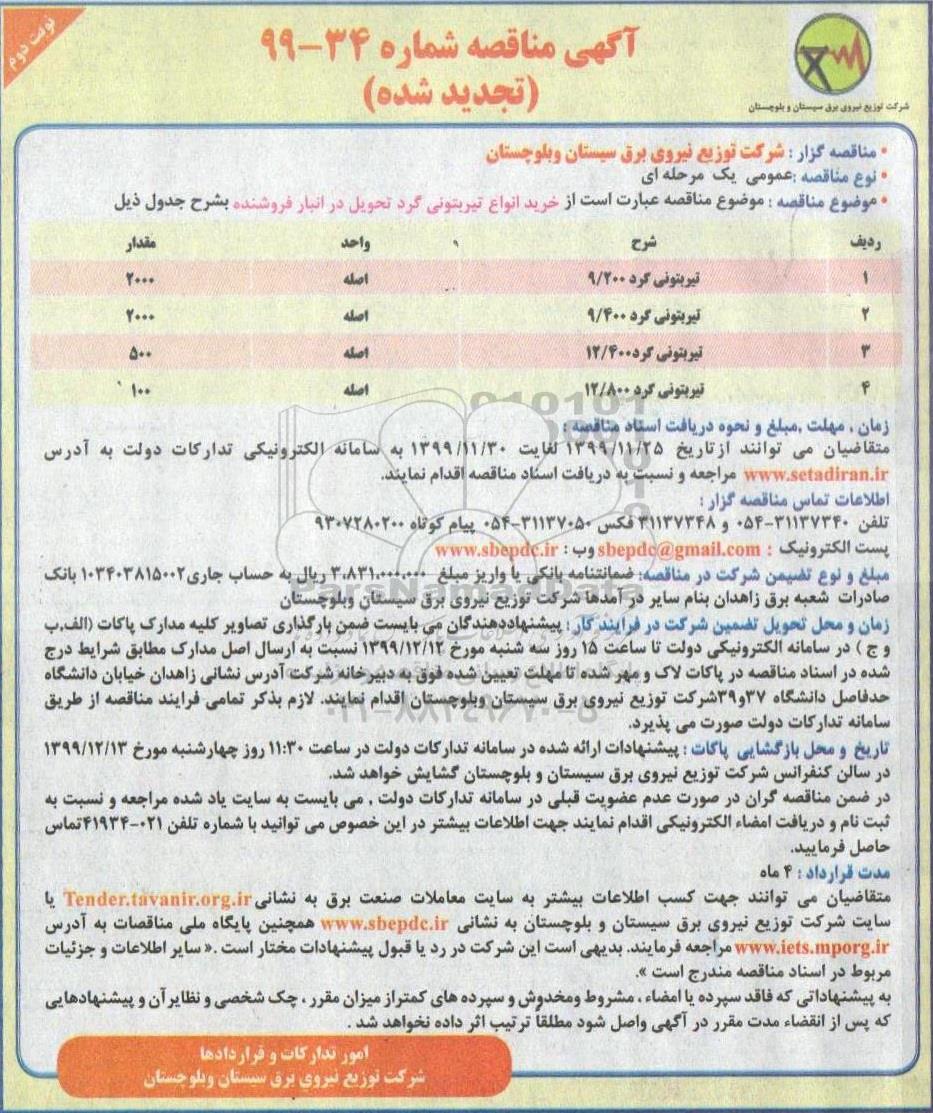 نوبت دوم
آگهی مناقصه شماره ۳۴-۹۹
(تجدید شده)
شرکت توزیع نیروی برق سیستان و بلوچستان
• مناقصه گزار : شرکت توزیع نیروی برق سیستان وبلوچستان
• نوع مناقصه :عمومی یک مرحله ای
• موضوع مناقصه : موضوع مناقصه عبارت است از خرید انواع تیربتونی گرد تحویل در انبار فروشنده بشرح جدول ذیل
ردیف شرح واحد مقدار
۱ تیربتونی گرد ۹/۲۰۰ اصله ۲۰۰۰
۲ تیربتونی گرد ۹/۴۰۰ اصله ۲۰۰۰
۳ تیربتونی گرد۱۲/۴۰۰ اصله ۵۰۰
۴ تیربتونی گرد ۱۲/۸۰۰ اصله ۱۰۰
زمان ، مهلت ،مبلغ و نحوه دریافت اسناد مناقصه :
متقاضیان می توانند ازتاریخ ۱۳۹۹/۱۱/۲۵ لغایت ۱۳۹۹/۱۱/۳۰ به سامانه الکترونیکی تدارکات دولت به آدرس
www.setadiran.ir مراجعه و نسبت به دریافت اسناد مناقصه اقدام نمایند.
اطلاعات تماس مناقصه گزار :
تلفن ۳۱۱۳۷۳۴۰-۰۵۴ و ۳۱۱۳۷۳۴۸ فکس ۳۱۱۳۷۰۵۰-۰۵۴ پیام کوتاه ۹۳۰۷۲۸۰۲۰۰
پست الکترونیک : sbepdc@gmail.com وب : www.sbepdc.ir
مبلغ و نوع تضمین شرکت در مناقصه: ضمانتنامه بانکی یا واریز مبلغ ۳،۸۳۱،۰۰۰،۰۰۰ ریال به حساب جاری۱۰۳۴۰۳۸۱۵۰۰۲ بانک
صادرات شعبه برق زاهدان بنام سایر در آمدها شرکت توزیع نیروی برق سیستان وبلوچستان
زمان و محل تحویل تضمین شرکت در فرایند کار : پیشنهاددهندگان می بایست ضمن بارگذاری تصاویر کلیه مدارک پاکات (الف,ب
و ج ) در سامانه الکترونیکی دولت تا ساعت ۱۵ روز سه شنبه مورخ ۱۳۹۹/۱۲/۱۲ نسبت به ارسال اصل مدارک مطابق شرایط درج
شده در اسناد مناقصه در پاکات لاک و مهر شده تا مهلت تعیین شده فوق به دبیرخانه شرکت آدرس نشانی زاهدان خیابان دانشگاه
حدفاصل دانشگاه ۳۷و۳۹شرکت توزیع نیروی برق سیستان وبلوچستان اقدام نمایند. لازم بذکر تمامی فرایند مناقصه از طریق
سامانه تدارکات دولت صورت می پذیرد.
تاریخ و محل بازگشایی پاکات : پیشنهادات ارائه شده در سامانه تدارکات دولت در ساعت ۱۱:۳۰ روز چهارشنبه مورخ ۱۳۹۹/۱۲/۱۳
در سالن کنفرانس شرکت توزیع نیروی برق سیستان و بلوچستان گشایش خواهد شد.
در ضمن مناقصه گران در صورت عدم عضویت قبلی در سامانه تدارکات دولت , می بایست به سایت یاد شده مراجعه و نسبت به
ثبت نام و دریافت امضاء الکترونیکی اقدام نمایند جهت اطلاعات بیشتر در این خصوص می توانید با شماره تلفن ۰۲۱-۴۱۹۳۴تماس
حاصل فرمایید.
مدت قرارداد : ۴ ماه
متقاضیان می توانند جهت کسب اطلاعات بیشتر به سایت معاملات صنعت برق به نشانی Tender.tavanir.org.ir یا
سایت شرکت توزیع نیروی برق سیستان و بلوچستان به نشانی www.sbepdc.ir همچنین پایگاه ملی مناقصات به آدرس
www.iets.mporg.ir مراجعه فرمایند. بدیهی است این شرکت در رد یا قبول پیشنهادات مختار است .« سایر اطلاعات و جزئیات
مربوط در اسناد مناقصه مندرج است ».
به پیشنهاداتی که فاقد سپرده یا امضاء ، مشروط ومخدوش و سپرده های کمتراز میزان مقرر ، چک شخصی و نظایر آن و پیشنهادهایی
که پس از انقضاء مدت مقرر در آگهی واصل شود مطلقاً ترتیب اثر داده نخواهد شد .
امور تدارکات و قراردادها
شرکت توزیع نیروی برق سیستان وبلوچستان
ParsNamadData
۰۲۱-۸۸۳۴۹۶۷۰-۵